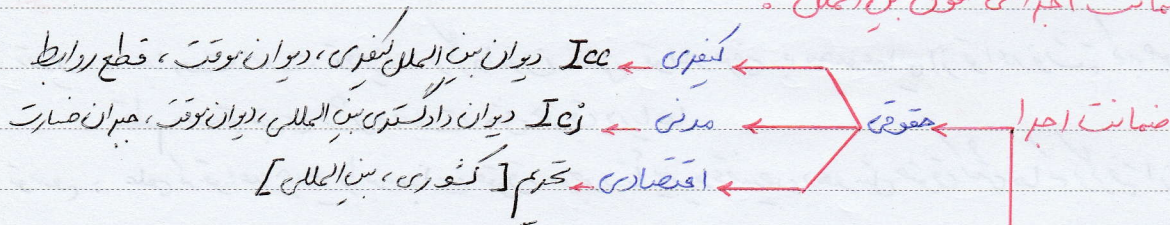 ضمانت اجرای حقوق بین الملل :
کیفری ← Icc دیوان بین المللی کیفری، دیوان موقت، قطع روابط
ضمانت اجرا ← حقوقی ← مدنی ← Icj دیوان دادگستری بین المللی، دیوان موقت، جبران خسارت
اقتصادی ← تحریم [کشوری، بین المللی]